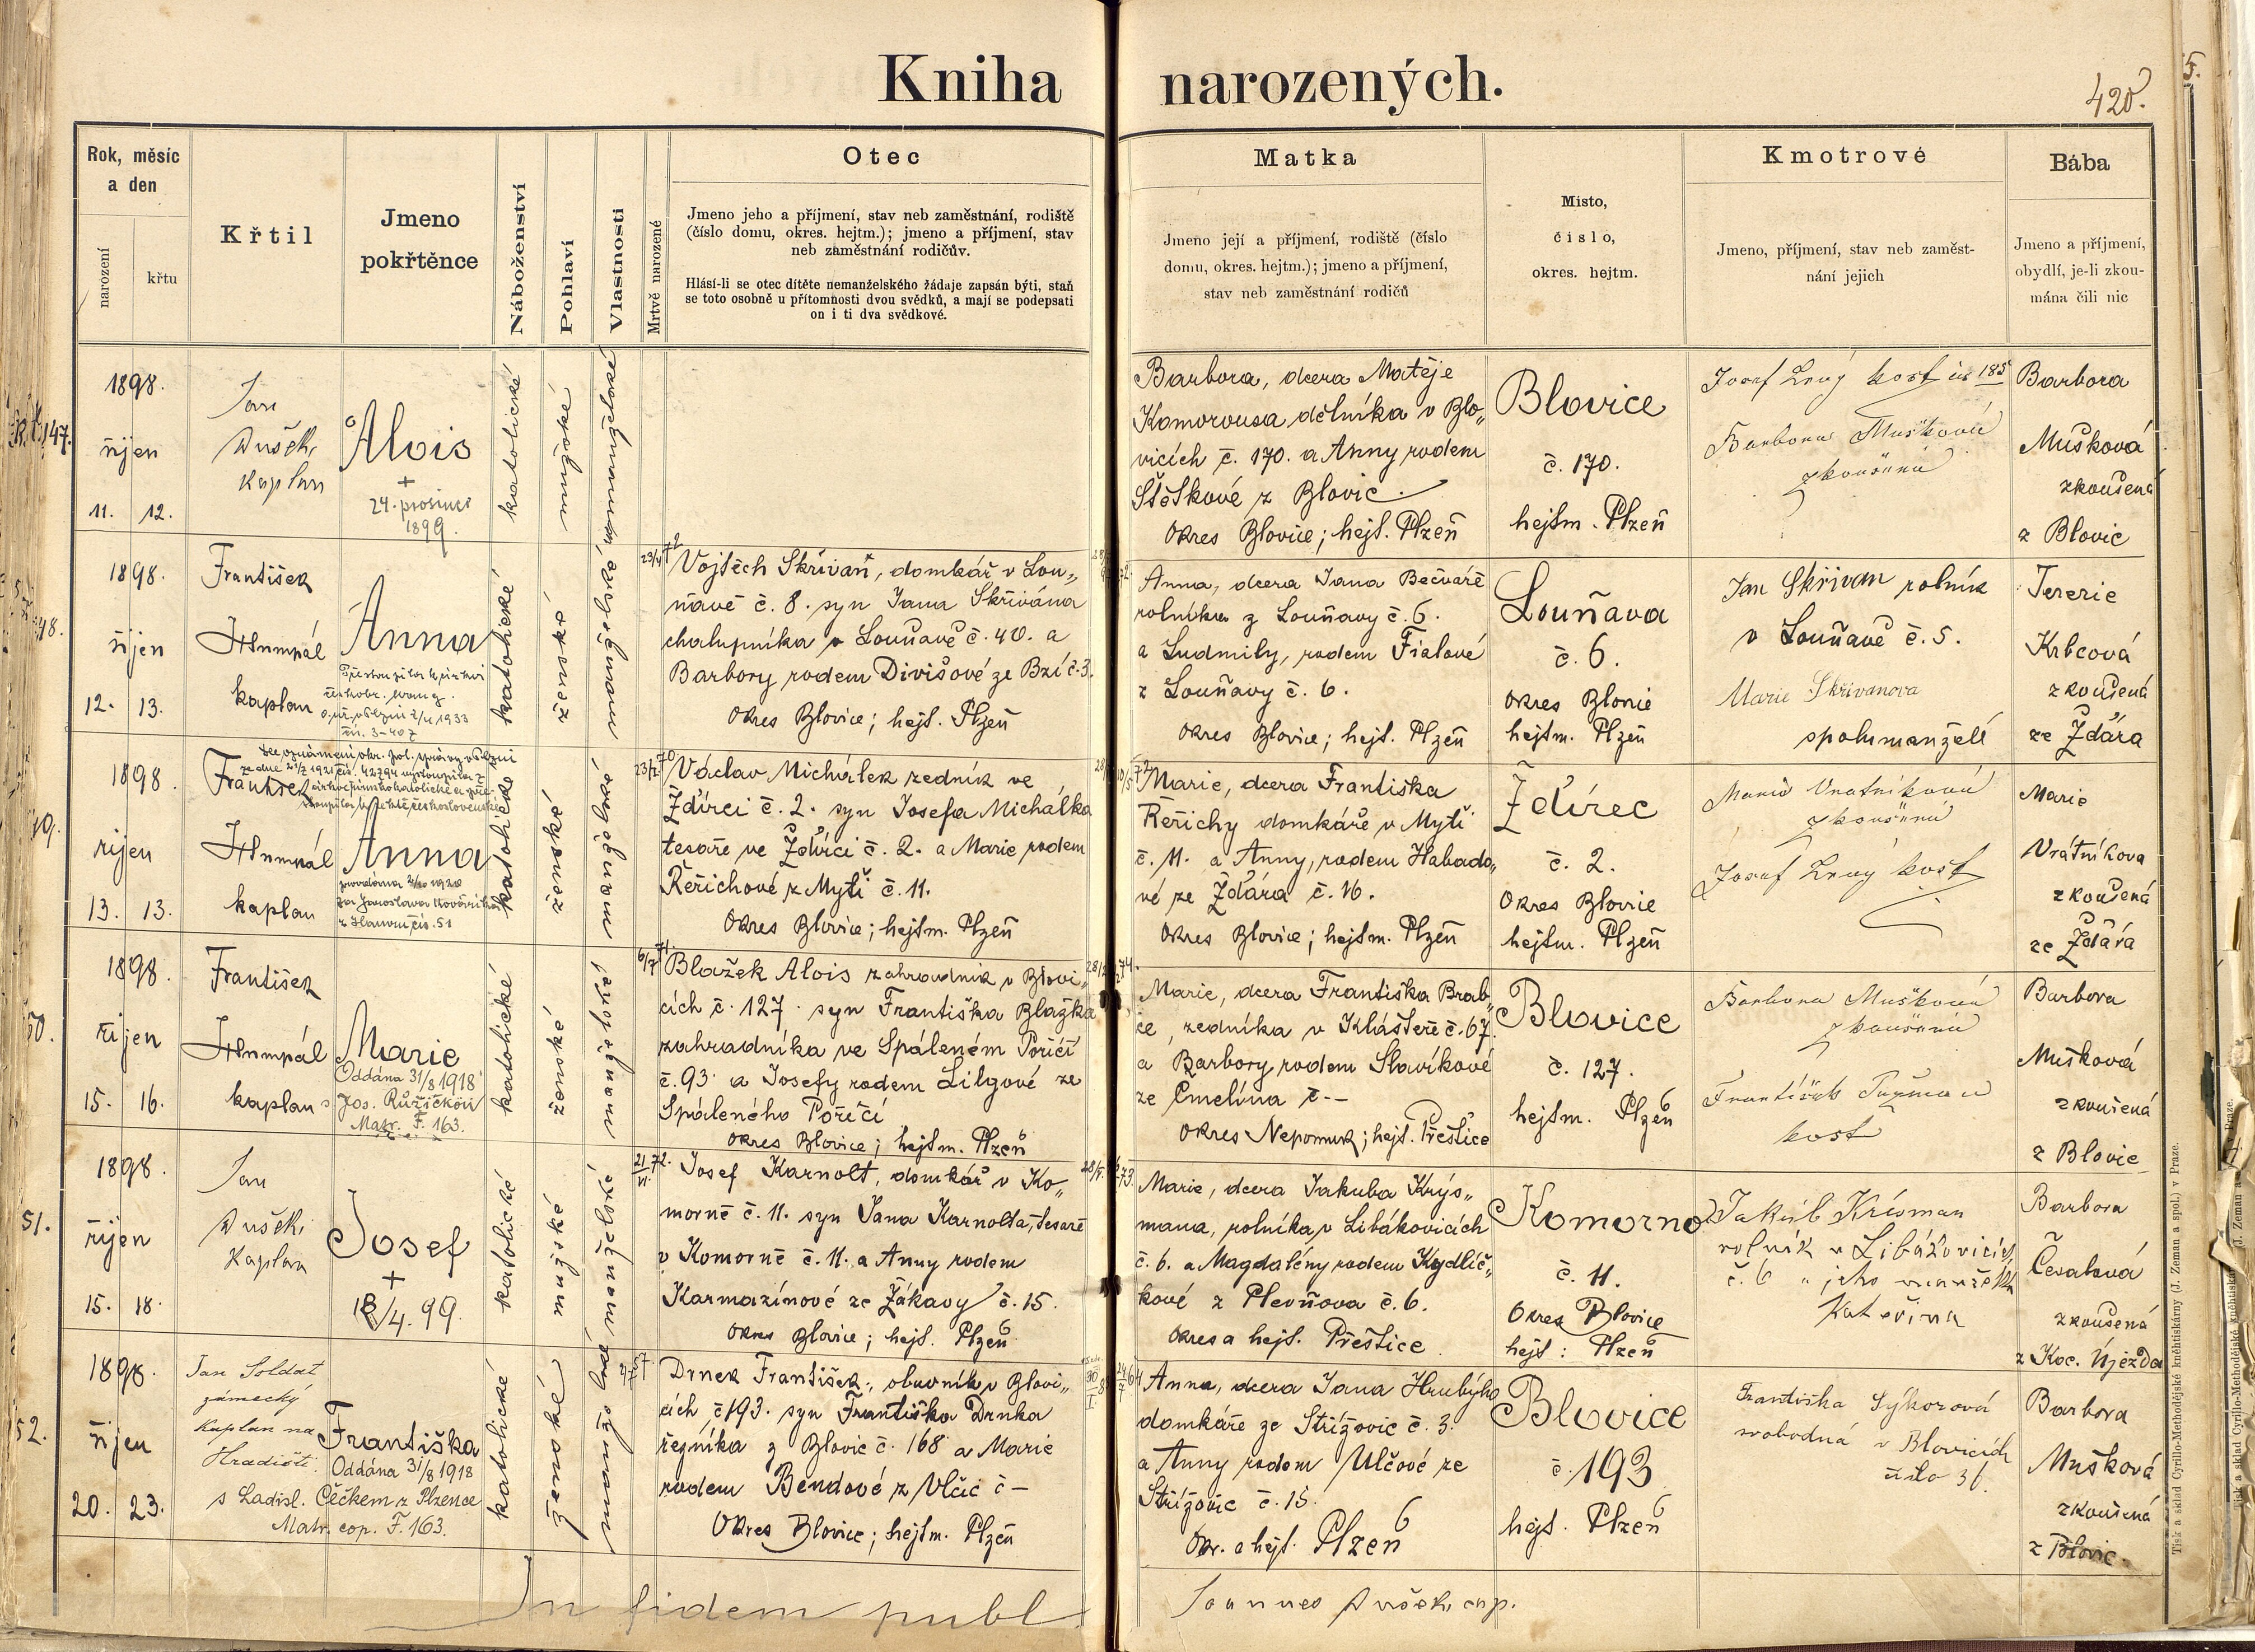 Kniha narozených.
420.
Rok, měsíc
a den
narození
křtu
Křtil
Jmeno
pokřtěnce
Náboženství
Pohlaví
Vlastnosti
Mrtvě narozené
Otec
Jmeno jeho a příjmení, stav neb zaměstnání, rodiště
(číslo domu, okres. hejtm.); jmeno a příjmení, stav
neb zaměstnání rodičův.
Hlásí-li se otec dítěte nemanželského žádaje zapsán býti, staň
se toto osobně u přítomnosti dvou svědků, a mají se podepsati
on i ti dva svědkové.
Matka
Jmeno její a příjmení, rodiště (číslo
domu, okres. hejtm.); jmeno a příjmení,
stav neb zaměstnání rodičů
Místo,
číslo,
okres. hejtm.
Kmotrové
Jmeno, příjmení, stav neb zaměst-
nání jejich
Bába
Jmeno a příjmení,
obydlí, je-li zkou-
mána čili nic
147.
1898.
říjen
11. 12.
Jan
Dušek,
Kaplan
Alois
+
24. prosince
1899.
katolické
mužské
nemanželské
Barbora, dcera Matěje
Komorousa dělníka v Blo„
vicích č. 170. a Anny rodem
Štětkové z Blovic.
Okres Blovice; hejt. Plzeň
Blovice
č. 170.
hejtm. Plzeň
Josef Lený kost. čís 185
Barbora Mušková
zkoušená
Barbora
Mušková
zkoušená
z Blovic
48.
1898.
říjen
12. 13.
František
Hlumpál
kaplan
Anna
Přestoupila k církvi
českobr. evang.
1933
katolické
ženské
manželské
Vojtěch Skřivan, domkář v Lou„
ňavě č. 8. syn Jana Skřivána
chalupníka v Louňavě č. 40. a
Barbory rodem Divišové ze Bzí č. 3.
Okres Blovice; hejt. Plzeň
Anna, dcera Jana Bečváře
rolníka z Louňavy č. 6.
a Ludmily, rodem Fialové
z Louňavy č. 6.
Okres Blovice; hejt. Plzeň
Louňava
č. 6.
Okres Blovic
hejtm. Plzeň
Jan Skřivan rolník
v Louňavě č. 5.
Marie Skřivanova
spolumanželé
Terezie
Krbcová
zkoušená
ze Žďára
49.
1898.
říjen
13. 13.
František
Hlumpál
kaplan
Anna
katolické
ženské
manželské
Václav Michálek zedník ve
Žďírci č. 2. syn Josefa Michálka
tesaře ve Žďírci č. 2. a Marie rodem
Řeřichové z Mytí č. 11.
Okres Blovice; hejtm. Plzeň
Marie, dcera Františka
Řeřichy domkáře v Mytí
č. 11. a Anny, rodem Habado„
vé ze Žďára č. 16.
Okres Blovice; hejtm. Plzeň
Žďírec
č. 2.
Okres Blovic
hejtm. Plzeň
Marie Vratníková
zkoušená
Josef Lený kost
Marie
Vrátníkova
zkoušená
ze Žďára
50.
1898.
říjen
15. 16.
František
Hlumpál
kaplan
Marie
Oddána 31/8 1918
s Jos. Růžičkou
Matr. F. 163.
katolické
ženské
manželské
Blažek Alois zahradník v Blovi„
cích č. 127 syn Františka Blažka
zahradníka ve Spáleném Poříčí
č. 93. a Josefy rodem Lilgové ze
Spáleného Poříčí
Okres Blovice; hejtm. Plzeň
Marie, dcera Františka Brab„
ce, zedníka v Klášteře č. 67.
a Barbory rodem Slavíkové
ze Cmelína č.--
Okres Nepomuk; hejt. Přeštice
Blovice
č. 127.
hejtm. Plzeň
Barbora Mušková
zkoušená
František
kost
Barbora
Mušková
zkoušená
z Blovic
51.
1898.
říjen
15. 18.
Jan
Dušek,
Kaplan
Josef
+
18/4. 99.
katolické
mužské
manželské
Josef Karnolt, domkář v Ko„
morně č. 11. syn Jana Karnolta, tesaře
v Komorně č. 11. a Anny rodem
Karmazínové ze Žákavy č. 15.
Okres Blovice; hejt. Plzeň
Marie, dcera Jakuba Krýs„
mana, rolníka v Libákovicích
č. 6. a Magdalény rodem Kydlíč„
kové z Plevňova č. 6.
Okres a hejt. Přeštice
Komorno
č. 11.
Okres Blovice
hejt: Plzeň
Jakub Krísman
rolník v Libákovicích
č. 6 a jeho manželka
Kateřina
Barbora
Česalová
zkoušená
z Koc. Újezda
52.
1898.
říjen
20. 23.
Jan Soldat
zámecký
kaplan na
Hradišti.
Františka
Oddána 31/8 1918
s Ladisl. Čečkem z Plzence
Matr. cop. F. 163.
katolické
ženské
manželské
Drnek František, obuvník v Blovi„
cích č 193. syn Františka Drnka
řezníka z Blovic č. 168 a Marie
rodem Bendové z Vlčic č –
Okres Blovice; hejtm. Plzeň
Anna, dcera Jana Hrubýho
domkáře ze Střížovic č. 3.
a Anny rodem Ulčové ze
Střížovic č. 15.
Okr. a hejt. Plzeň
Blovice
č. 193
hejt. Plzeň
Františka Sýkorová
svobodná v Blovicích
číslo 36.
Barbora
Mušková
zkoušená
z Blovic.
In fidem publ.
Joannes Dušek, cap.
Tisk a sklad Cyrillo-Methodějské knihtiskárny (J. Zeman a spol.) v Praze.